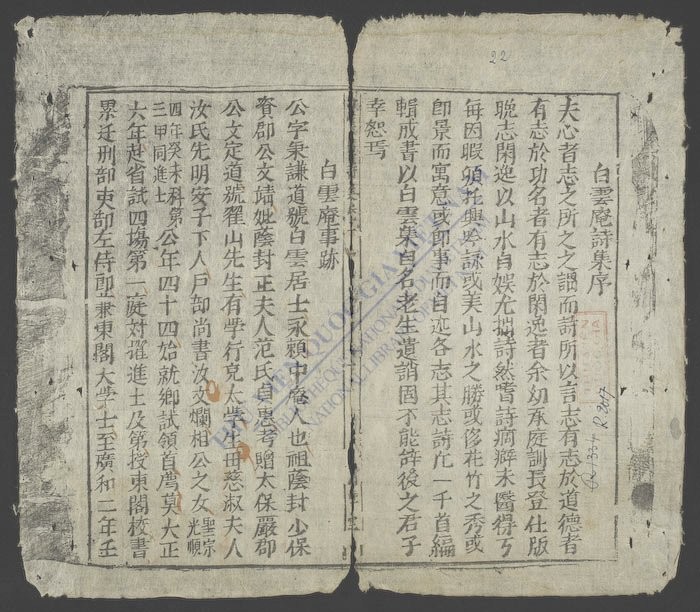 白雲庵詩集序
夫心者志之所之之謂而詩所以言志有志於道德者
有志於功名者有志於閑逸者余幼承庭訓長登仕版
晚志閑逸以山水自娛尤拙詩然嗜詩痼癖未醫得丂
每因暇頌托興吟詠或美山水之勝或侈花竹之秀或
即景而寓意或即事而自述各志其志詩凢一千首編
輯成書以白雲菴自名老生遺誚固不能辞後之君子
幸恕焉
白雲庵事跡
公字秉謙道號白雲居士永賴中庵人也祖蔭封少保
資郡公文靖妣蔭封正夫人范氏貞惠考贈太保嚴郡
公文定道號狸山先生有學行克太學生母慈淑夫人
汝氏先明安子下人戸部尚書汝文爛相公之女聖宗光順
四年癸未科第三甲同進士公年四十四始就鄉試領首薦莫大正
六年赴省試四塲第一庭对擢進士及第授東閣校書
累迁刑部吏部左侍郎兼東閣大學士至廣和二年壬
22
R.2017
BIBLIOTHÈQUE NATIONALE
NATIONAL LIBRARY OF VIETNAM